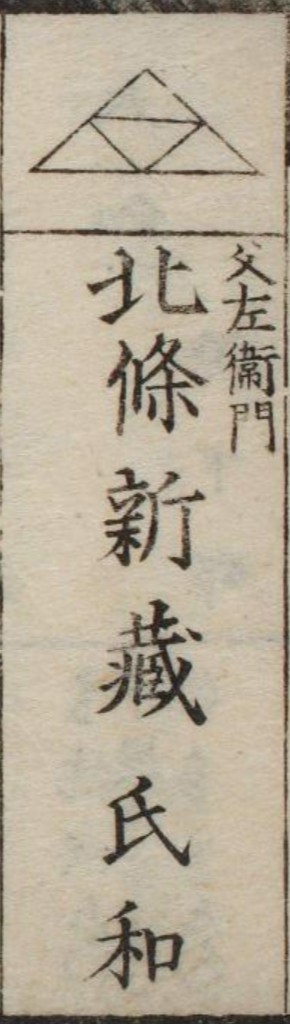 父左衛門
北條新藏氏和